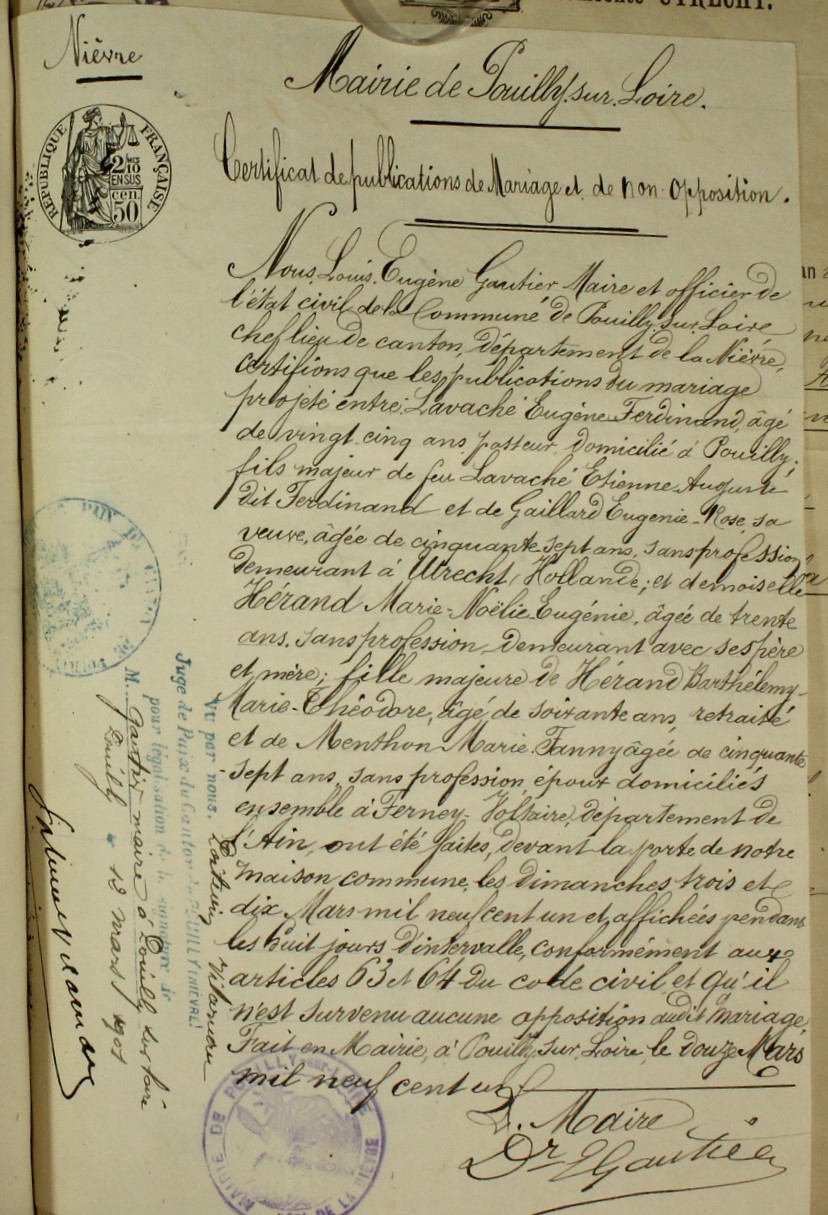 UTRECHT.
Nièvre
Mairie de Pouilly-sur-Loire.
RÉPUBLIQUE FRANÇAISE
2/10
EN SUS
50 cen.
Certificat de publications de Mariage et de non-opposition.
Nous, Louis-Eugène Gautier Maire et officier de
l'état civil de la Commune de Pouilly-sur-Loire
chef lieu de canton, département de la Nièvre,
certifions que les publications du mariage
projeté entre: Lavaché Eugène-Ferdinand, âgé
de vingt-cinq ans, pasteur, domicilié à Pouilly;
fils majeur de feu Lavaché Etienne-Auguste
dit Ferdinand et de Gaillard Eugenie-Rose, sa
veuve, âgée de cinquante sept ans, sans profession
demeurant à Utrecht, Hollande; et demoiselle
Hérand Marie-Noëlie-Eugénie, âgée de trente
ans, sans profession, demeurant avec ses père
et mère; fille majeure de Hérand Barthélemy-
Marie-Théodore, âgé de soixante ans, retraité
et de Menthon Marie-Fanny âgée de cinquante
sept ans, sans profession, époux domiciliés
ensemble à Ferney-Voltaire, département de
l'Ain, ont été faites, devant la porte de notre
maison commune, les dimanches trois et
dix Mars mil neuf cent un et affichées pendant
les huit jours d'intervalle, conformément aux
articles 63 et 64 du code civil et qu'il
n'est survenu aucune opposition audit mariage
Fait en Mairie, à Pouilly-sur-Loire, le douze Mars
mil neuf cent un
Le Maire
Dr E Gautier
MAIRIE DE POUILLY SUR LOIRE
DE LA NIÈVRE
Vu par nous,
Juge de Paix du Canton de POUILLY (NIÈVRE)
pour légalisation de la signature de
M. Gautier maire à Pouilly sur Loire
Pouilly le 12 mars 1901